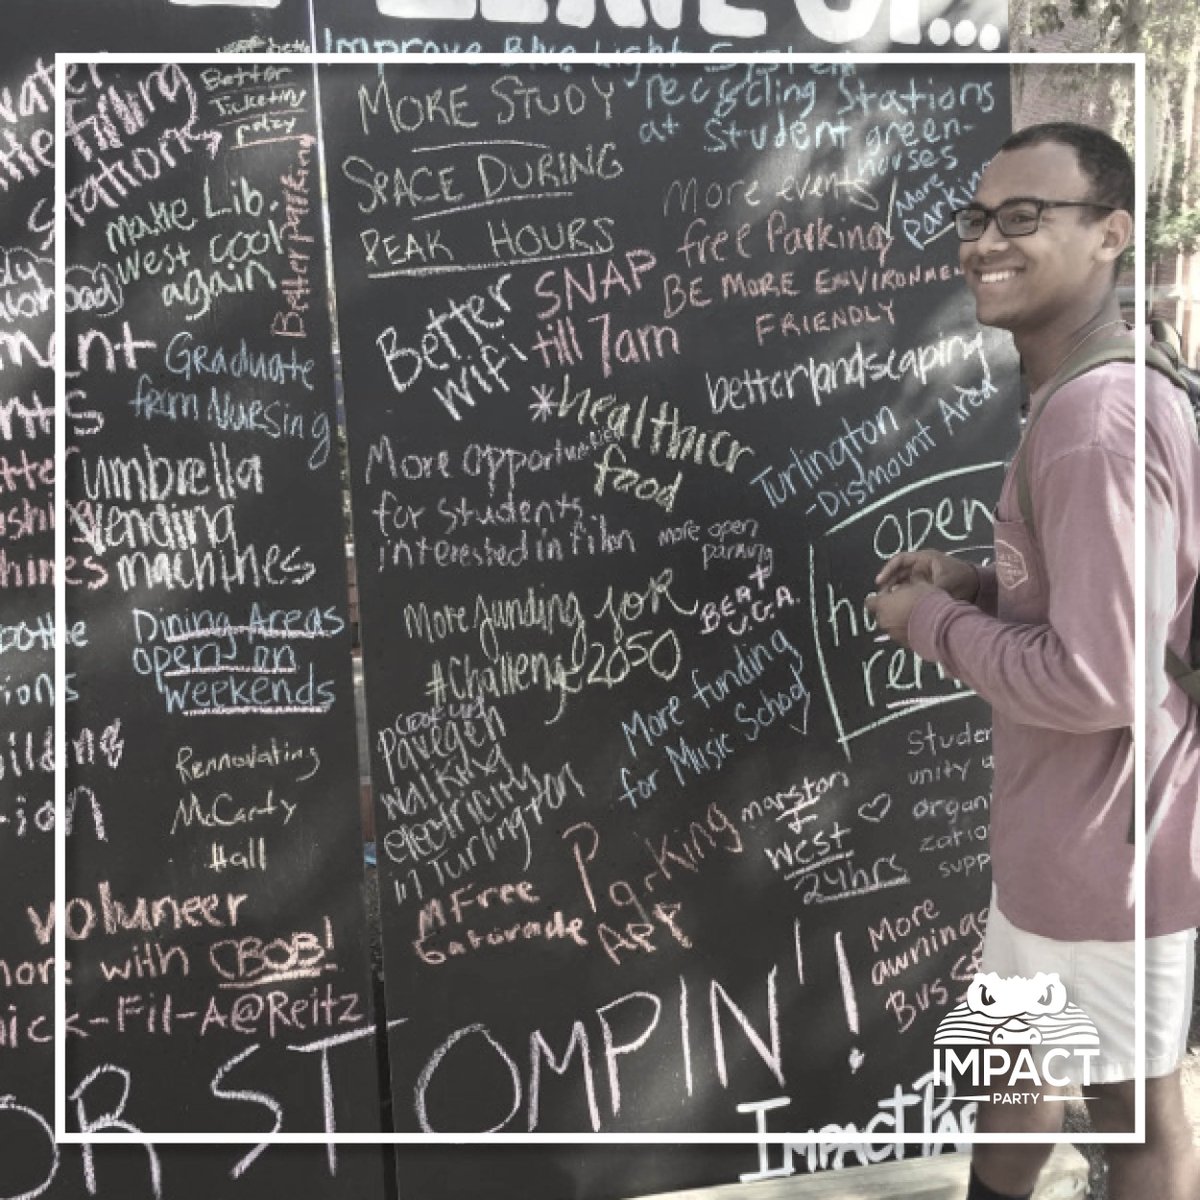 Improve Blue Light System
water
filling
stations
Better
Ticketing
policy
Better parking
make Lib.
west cool
again
Graduate
from Nursing
umbrella
vending
machines
Dining Areas
open on
weekends
Rennovating
McCarty
Hall
voluneer
more with CBOB!
ick-Fil-A@Reitz
MORE STUDY
SPACE DURING
PEAK HOURS
recycling stations
at student green-
houses
More events
More
Parking
free Parking
BE MORE ENVIRONMEN
FRIENDLY
Better
wifi
SNAP
till 7am
*healthier
food
betterlandscaping
Turlington
-Dismount Area
More opportunities
for students
interested in film
more open
parking
open
More funding for
#Challenge2050
BEAT
U.G.A.
More funding
for Music School
Pavegen
walking
electricity
in Turlington
marston
+
west
24hrs
Studen
unity
organi
zatio
supp
M Free
Gatorade
Parking
APP
More
awnings
Bus St
OR STOMPIN'!
IMPACT PAR
IMPACT
PARTY